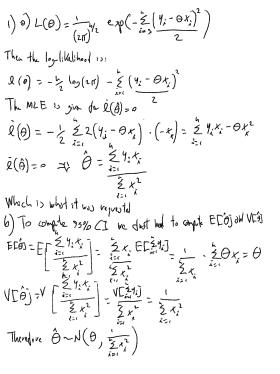 1) a) L(θ) = 1/(2π)^{n/2} exp(-∑_{i=1}^{n} (y_i - θx_i)²/2)
Then the log-likelihood is:
l(θ) = -n/2 log(2π) - ∑_{i=1}^{n} (y_i - θx_i)²/2
The MLE is given for l̇(θ̂)=0
l̇(θ) = -1/2 ∑_{i=1}^{n} 2(y_i - θx_i)·(-x_i) = ∑_{i=1}^{n} y_i x_i - θx_i²
l̇(θ̂)=0 ⇒ θ̂ = ∑_{i=1}^{n} y_i x_i / ∑_{i=1}^{n} x_i²
Which is what it was requested
b) To compute 95% CI we just need to compute E[θ̂] and V[θ̂]
E[θ̂] = E[∑_{i=1}^{n} y_i x_i / ∑_{i=1}^{n} x_i²] = ∑_{i=1}^{n} x_i E[∑_{i=1}^{n} y_i] / ∑_{i=1}^{n} x_i² = 1/∑_{i=1}^{n} x_i² · ∑_{i=1}^{n} θx_i = θ
V[θ̂] = V[∑_{i=1}^{n} y_i x_i / ∑_{i=1}^{n} x_i²] = V[∑_{i=1}^{n} y_i] / ∑_{i=1}^{n} x_i² = 1/∑_{i=1}^{n} x_i²
Therefore θ̂ ~ N(θ, 1/∑_{i=1}^{n} x_i²)